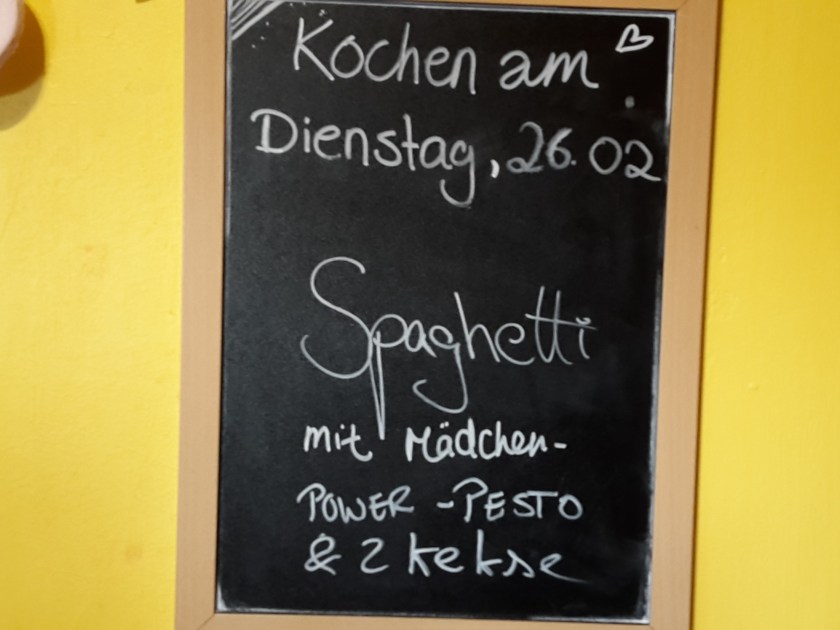 Kochen am
Dienstag, 26.02
Spaghetti
mit Mädchen-
POWER -PESTO
& 2 kekse